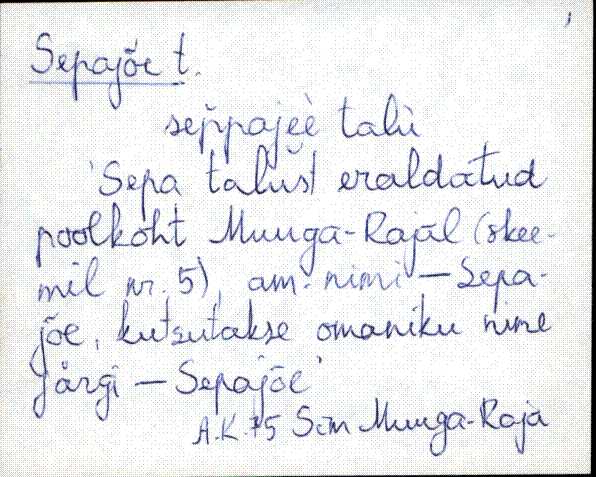 Sepajõe t.
seppajeè talù
'Sepa talust eraldatud
poolkoht Muuga-Rajal (skee-
mil nr. 5), am. nimi – Sepa-
jõe, kutsutakse omaniku nime
järgi – Sepajõe'
A.K. 75 Sim Muuga-Raja